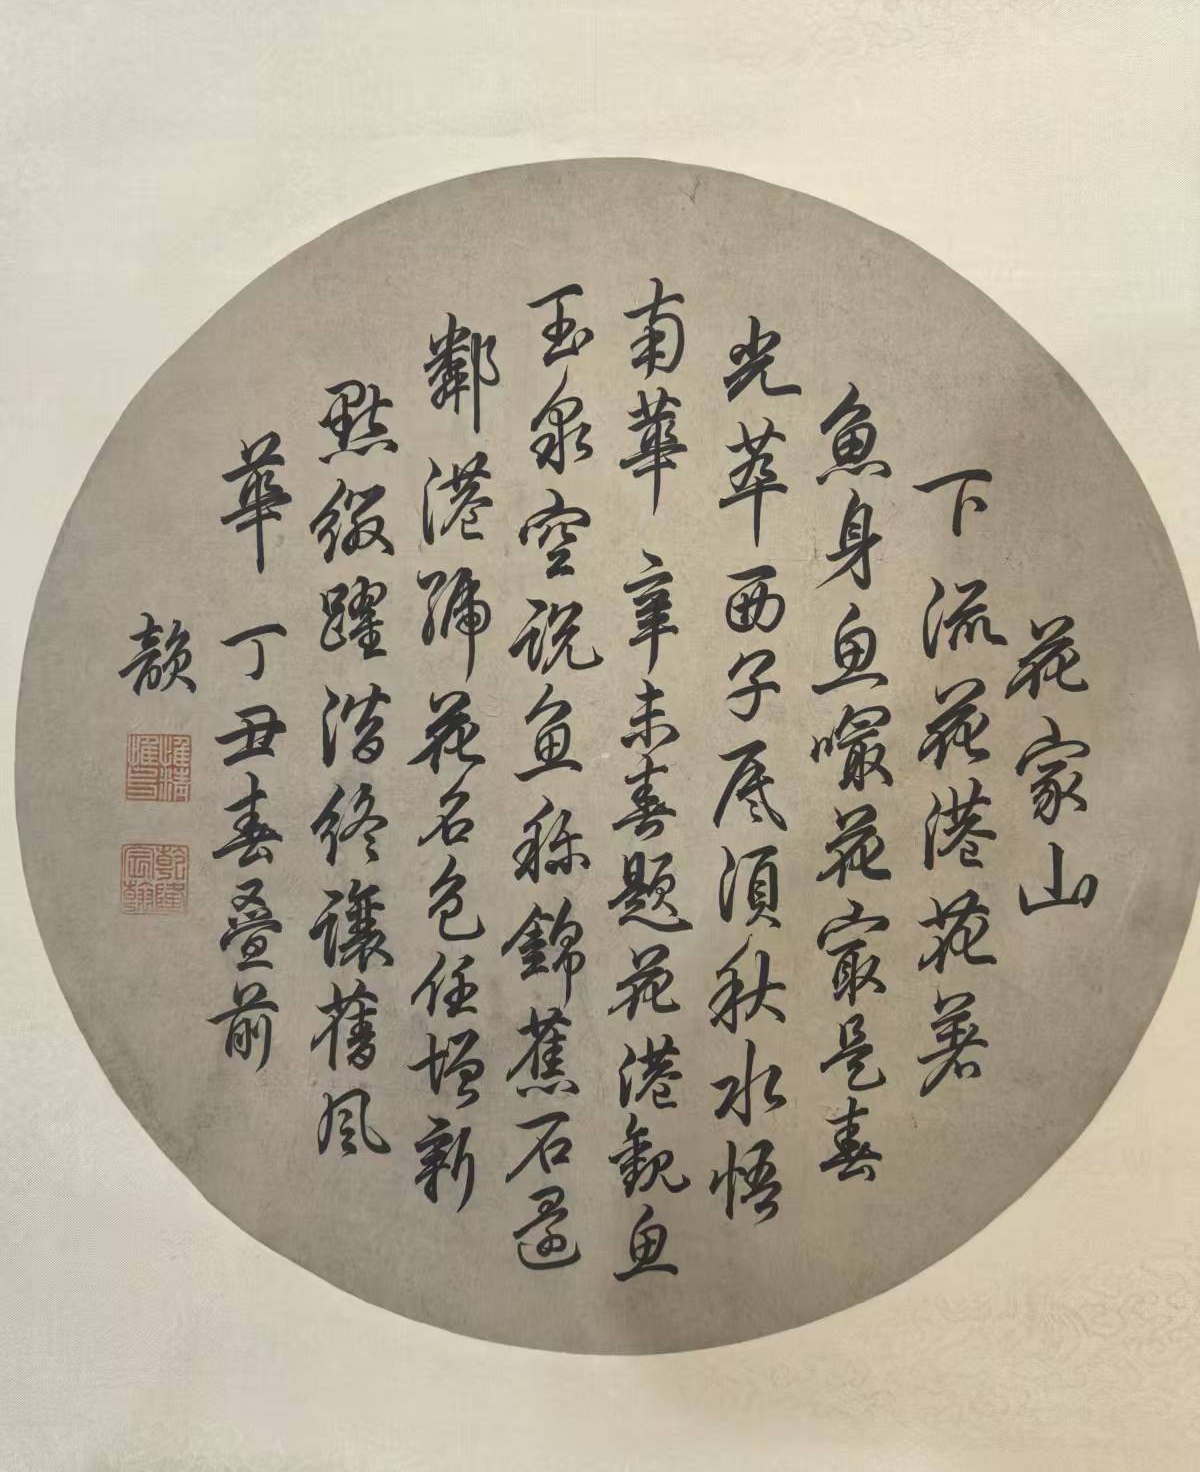 花家山
下流花港花著
魚身魚嘬花寂是春
光萃西子底須秋水悟
南華 辛未春題花港觀魚
玉泉空說魚稱錦蕉石還
鄰港號花名色任增新
點綴躍潛終讓舊風
華 丁丑春疊前
韻
惟精惟一
乾隆宸翰